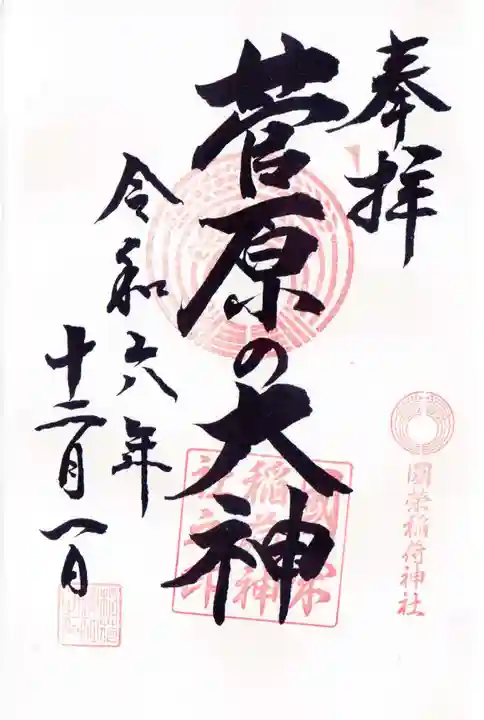 奉拝
國榮稲荷神社
菅原の大神
令和六年
十二月一日